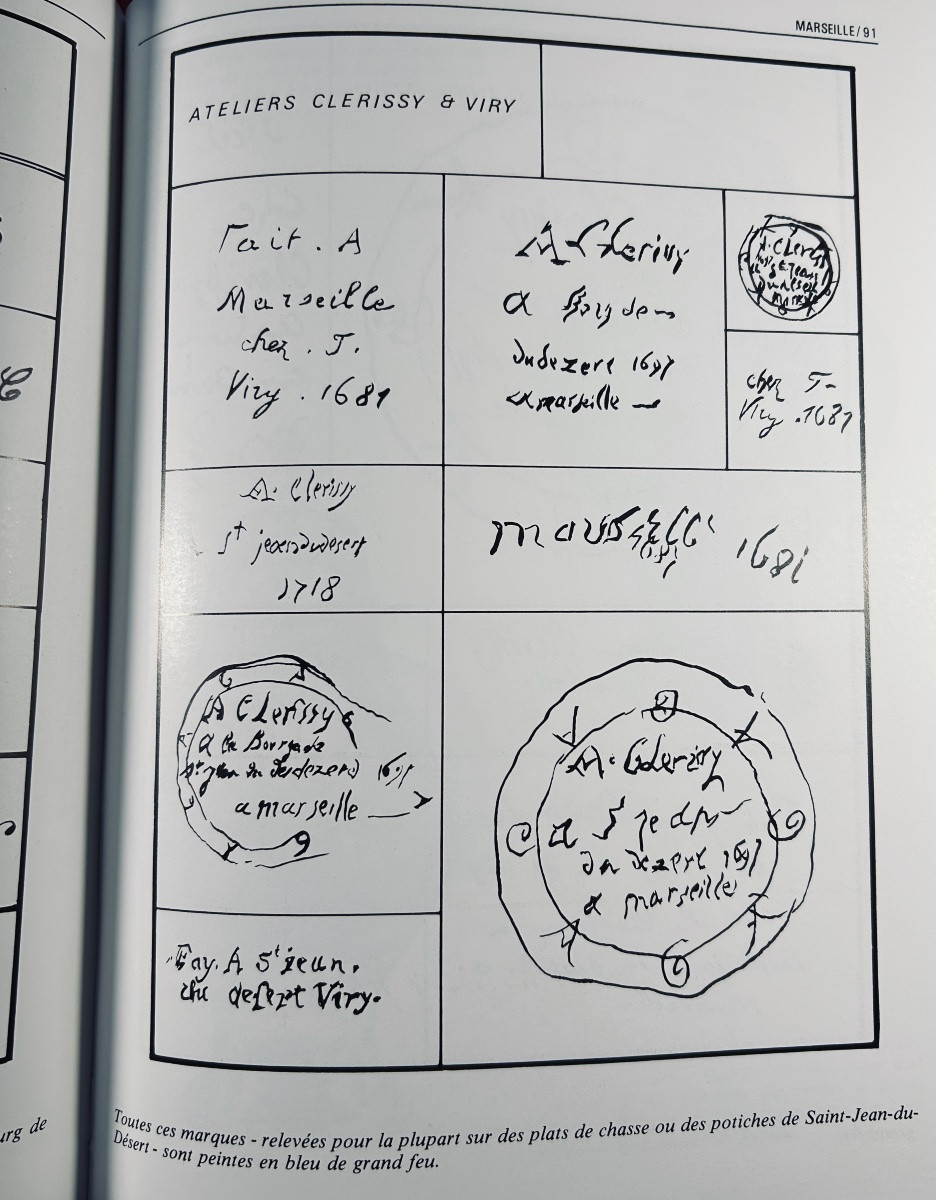 MARSEILLE/91
ATELIERS CLERISSY & VIRY
Fait . A
Marseille
chez . J.
Viry . 1681
A Clerissy
a
dudezert 1697
a marseille
A. Clerissy
chez J
Viry . 1681
A. Clerissy
St jean du desert
1718
1681
A Clerissy
a
1697
a marseille
A. Clerizy
a S jean
du dezert 1697
a marseille
Fay. A St jean.
du desert Viry.
urg de
Toutes ces marques - relevées pour la plupart sur des plats de chasse ou des potiches de Saint-Jean-du-
Désert - sont peintes en bleu de grand feu.